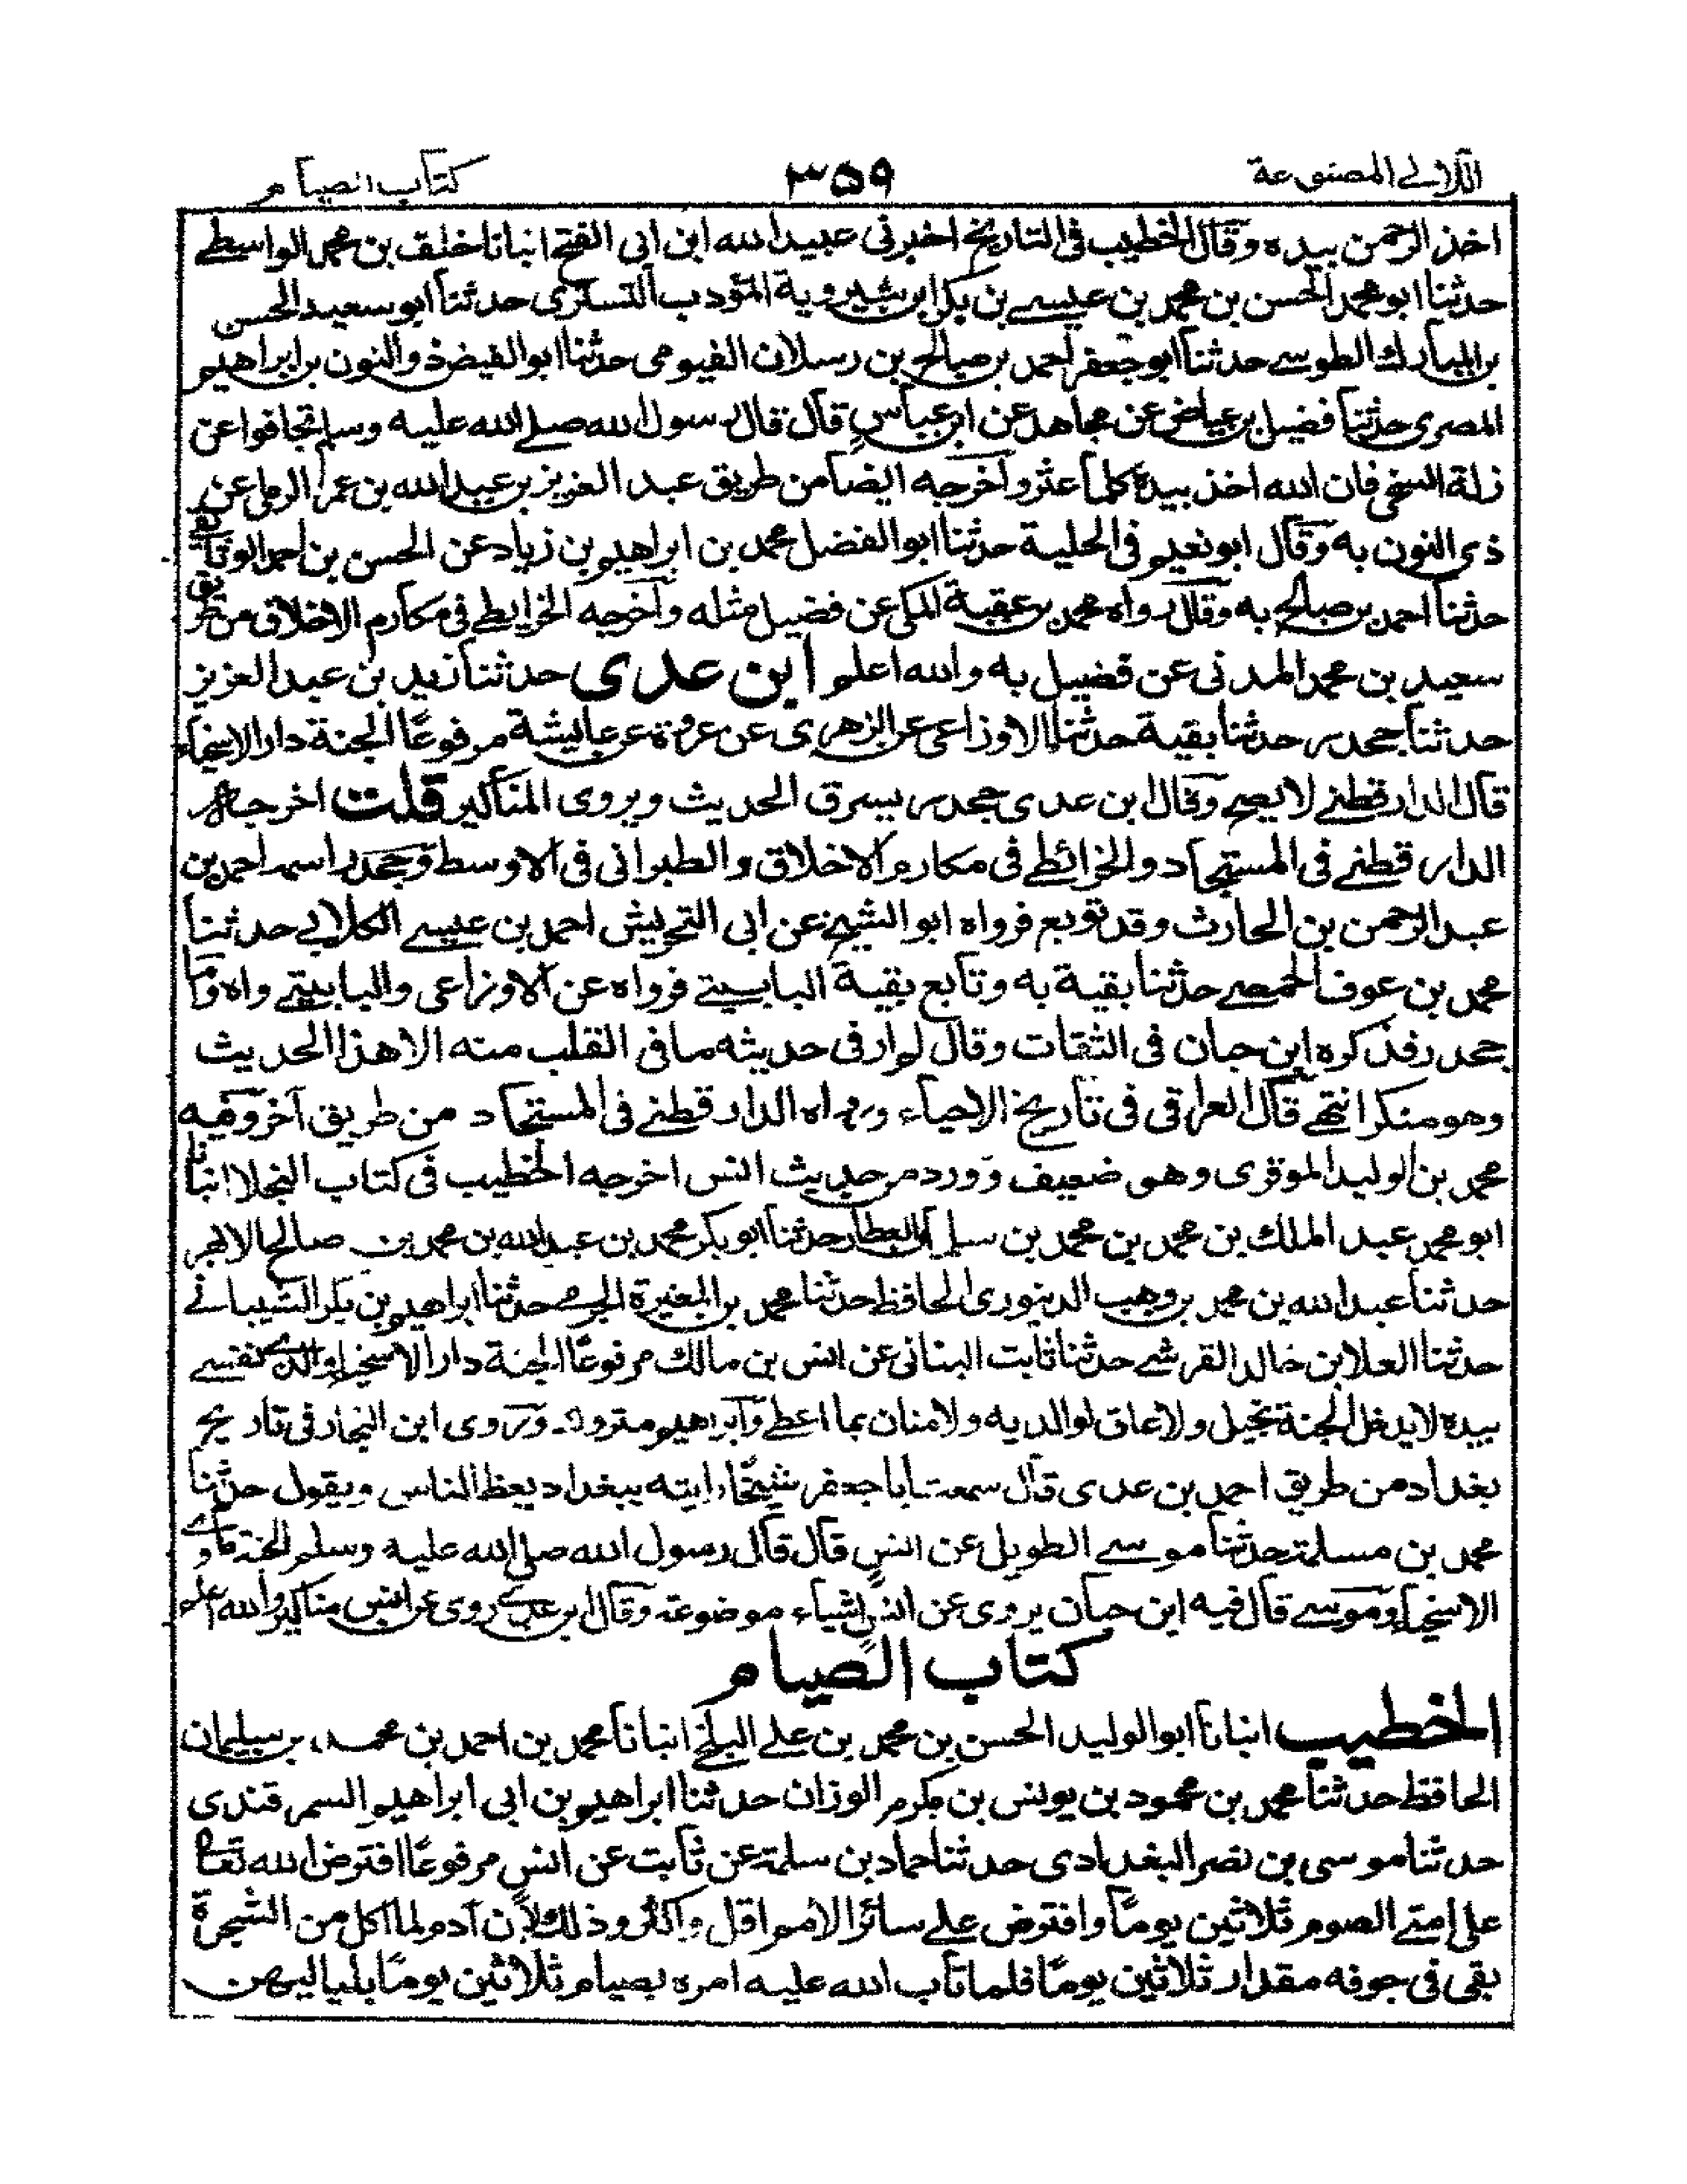 اللآلي المصنوعة ٣٥٩ كتاب الصيام
اخذ الرحمن بيده وقال الخطيب فى التاريخ اخبرنى عبيد الله ابن ابى الفتح انبانا خلف بن محمد الواسطے
حدثنا ابو محمد الحسن بن محمد بن عيسے بن بكر ابن شيروية المؤدب التسترى حدثنا ابو سعيد الحسن
بن المبارك الطوسے حدثنا ابو جعفر احمد بن صالح بن رسلان الفيومى حدثنا ابو الفيض ذو النون بن ابراهيم
المصرى حدثنا فضيل بن عياض عن مجاهد عن ابن عباس قال قال رسول الله صلے الله عليه وسلم تجافوا عن
زلة السخى فان الله اخذ بيده كلما عثر واخرجه ايضا من طريق عبد العزيز بن عبد الله بن عمر الرملى عن
ذى النون به وقال ابو نعيم فى الحلية حدثنا ابو الفضل محمد بن ابراهيم بن زياد عن الحسن بن احمد الوثائقى
حدثنا احمد بن صالح به وقال رواه محمد بن عقبة المكى عن فضيل مثله واخرجه الخرايطے فى مكارم الاخلاق من طريق
سعيد بن محمد المدنى عن فضيل به والله اعلم ابن عدى حدثنا زيد بن عبد العزيز
حدثنا جحدر حدثنا بقية حدثنا الاوزاعى عن الزهرى عن عروة عن عايشة مرفوعًا الجنة دار الاسخياء
قال الدارقطنے لا يصح وقال ابن عدى جحدر يسرق الحديث ويروى المناكير قلت اخرجه
الدارقطنے فى المستجاد والخرائطے فى مكارم الاخلاق والطبرانى فى الاوسط وجحدر اسمه احمد بن
عبد الرحمن بن الحارث وقد توبع فرواه ابو الشيخ عن ابى التحريش احمد بن عيسے الكلابے حدثنا
محمد بن عوف الحمصے حدثنا بقية به وتابع بقية البابيتے فرواه عن الاوزاعى والبابيتے واه واما
جحدر فذكره ابن حبان فى الثقات وقال لم ار فى حديثه ما فى القلب منه الا هذا الحديث
وهو منكر انتهے قال العراقى فى تاريخ الاحياء ورواه الدارقطنے فى المستجاد من طريق آخر وفيه
محمد بن الوليد الموقرى وهو ضعيف وورد من حديث انس اخرجه الخطيب فى كتاب البخلا انبانا
ابو محمد عبد الملك بن محمد بن محمد بن سلمان العطار حدثنا ابو بكر محمد بن عبد الله بن محمد بن صالح الابهر
حدثنا عبد الله بن محمد بن وهيب الدينورى الحافظ حدثنا محمد بن المغيرة الجرمے حدثنا ابراهيم بن بكر الشيبانے
حدثنا العلا بن خالد القرشے حدثنا ثابت البنانى عن انس بن مالك مرفوعًا الجنة دار الاسخياء والذے نفسے
بيده لا يدخل الجنة بخيل ولا عاق لوالديه ولا منان بما اعطے وابراهيم متروك وروى ابن النجار فى تاريخ
بغداد من طريق احمد بن عدى قال سمعت ابا جعفر شيخًا رايته ببغداد يعظ الناس ويقول حدثنا
محمد بن مسلمة حدثنا موسے الطويل عن انس قال قال رسول الله صلى الله عليه وسلم الجنة ماوے
الاسخياء وموسے قال فيه ابن حبان يروى عن انس اشياء موضوعة وقال ابن عدے روى عن انس مناكير والله اعلم
كتاب الصيام
الخطيب انبانا ابو الوليد الحسن بن محمد بن علے البلخے انبانا محمد بن احمد بن محمد بن سليمان
الحافظ حدثنا محمد بن محمود بن يونس بن مكرم الوزان حدثنا ابراهيم بن ابى ابراهيم السمرقندى
حدثنا موسى بن نصر البغدادى حدثنا حماد بن سلمة عن ثابت عن انس مرفوعًا افترض الله تعالى
على امتے الصوم ثلاثين يومًا وافترض علے سائر الامم اقل واكثر وذلك لان آدم لما اكل من الشجرة
بقى فى جوفه مقدار ثلاثين يومًا فلما تاب الله عليه امره بصيام ثلاثين يومًا بلياليهن